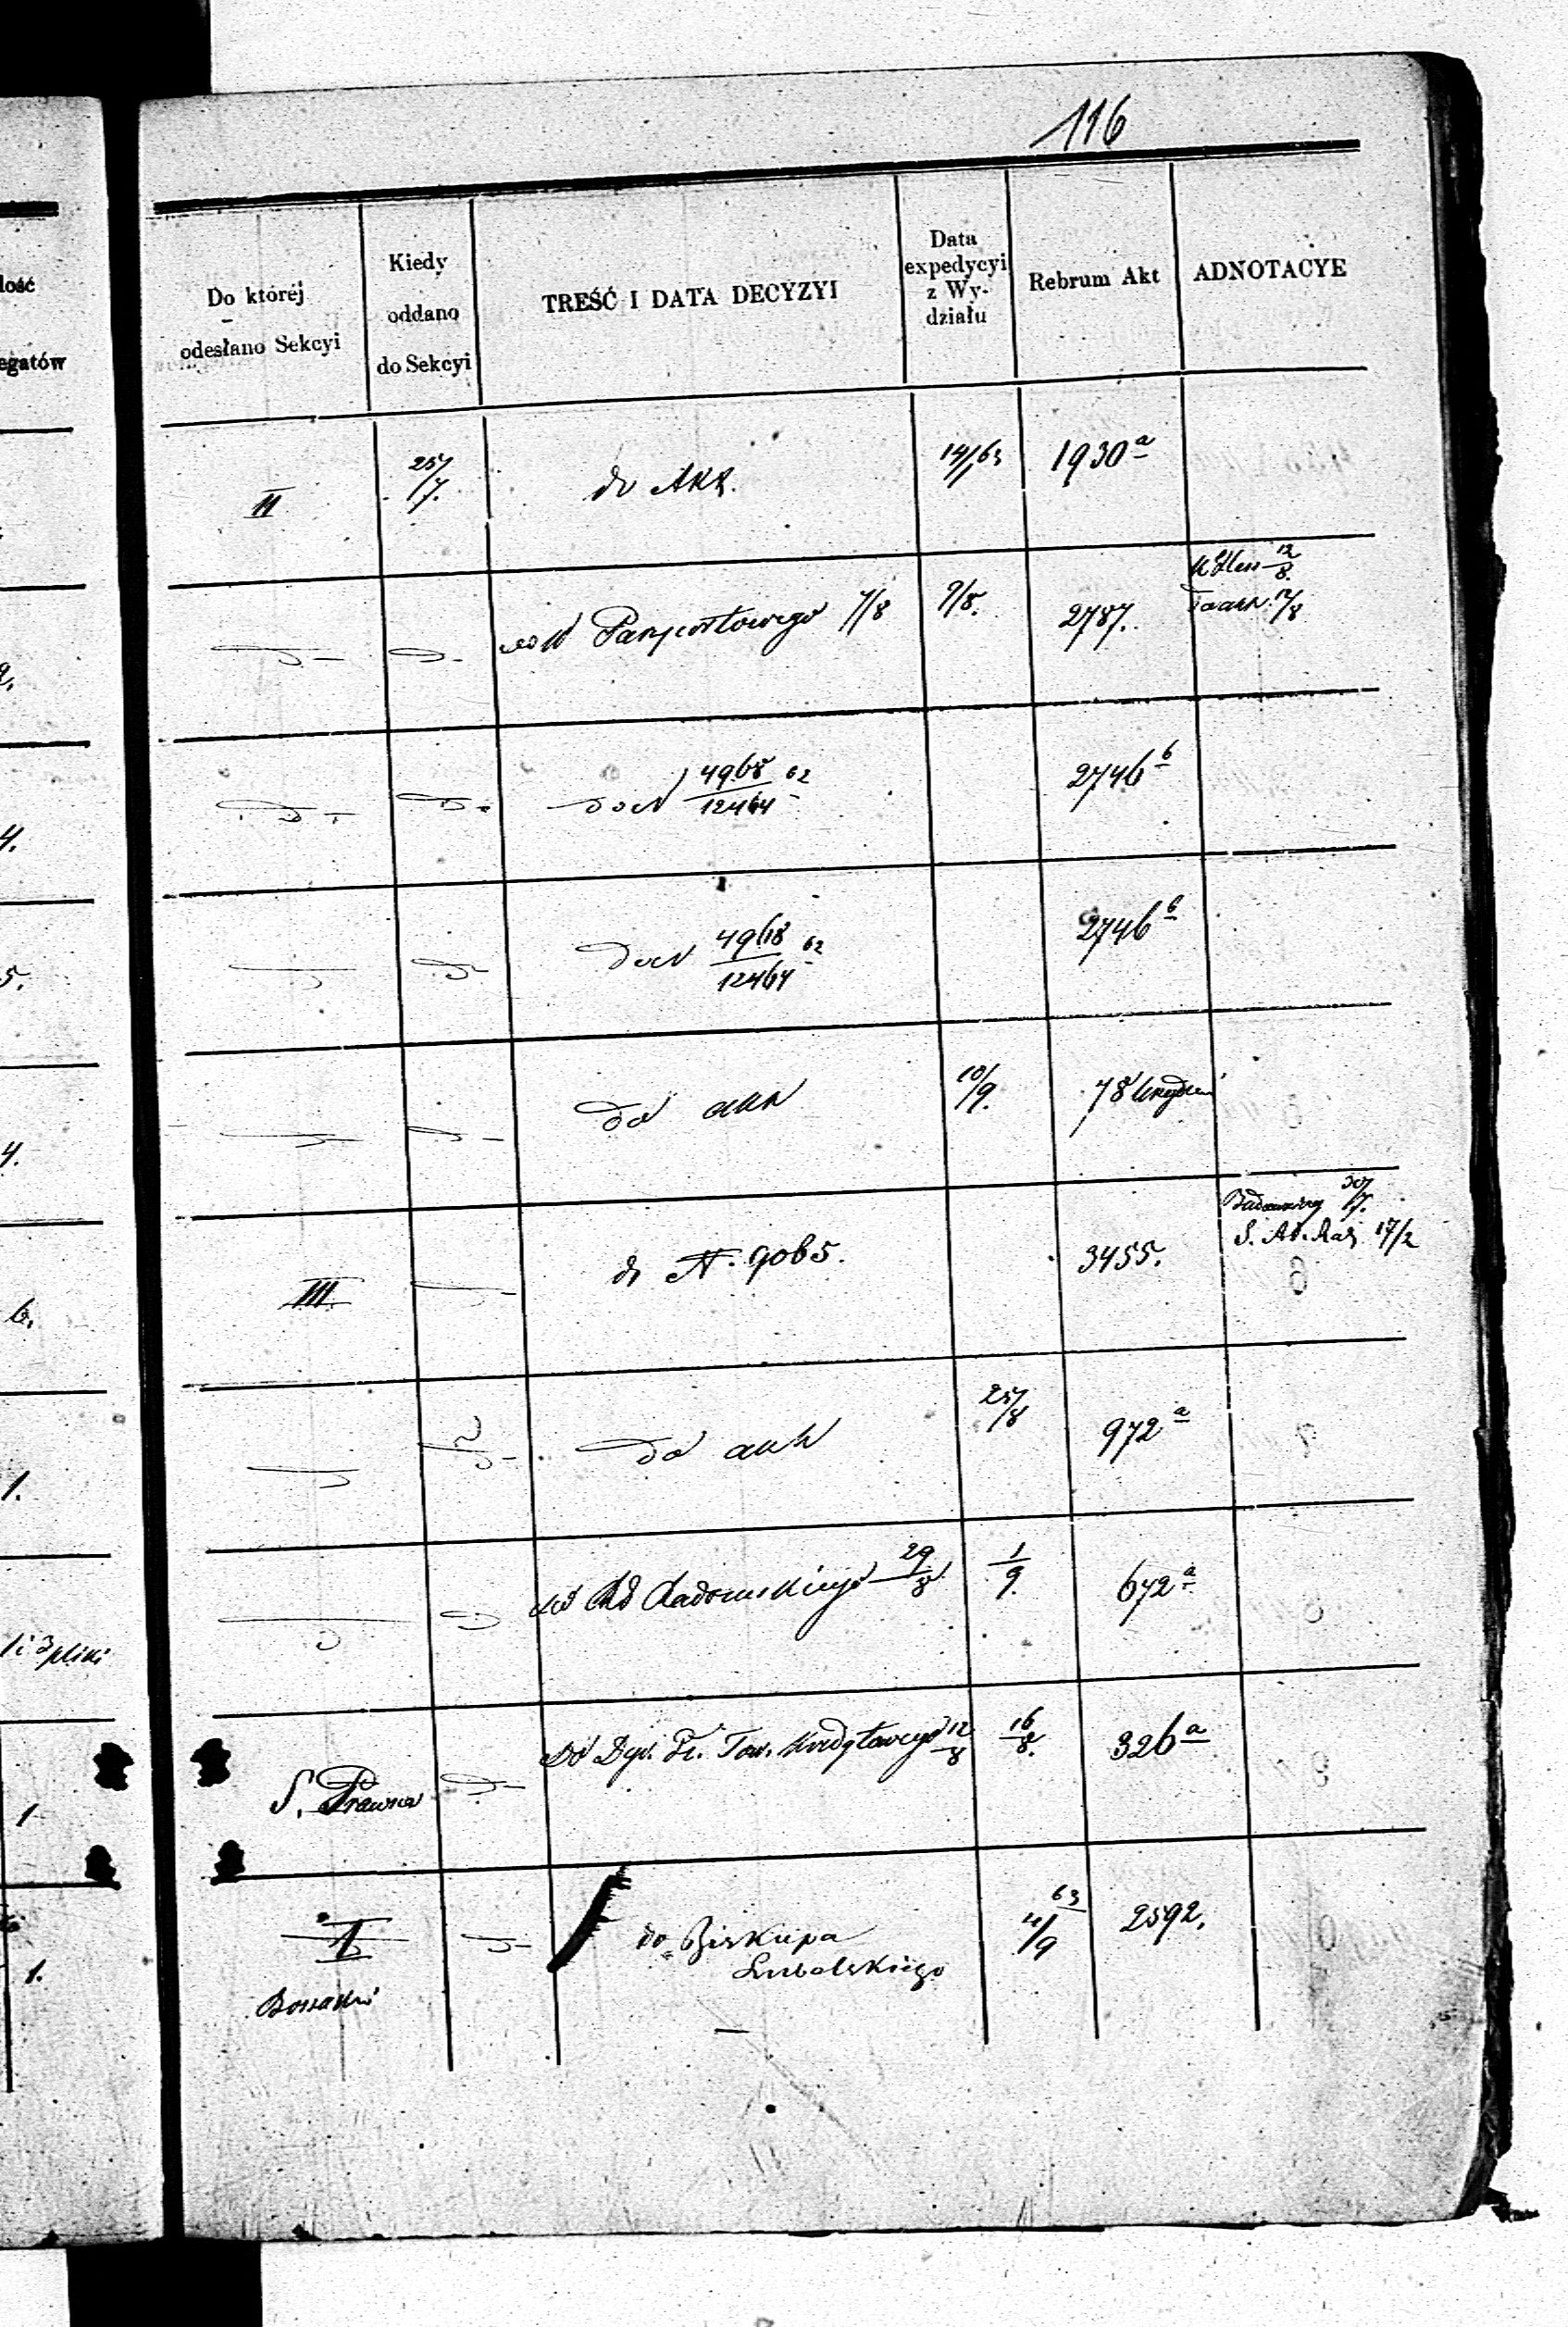 116
lość
egatów
Do któréj
odesłano Sekcyi
Kiedy
oddano
do Sekcyi
TREŚĆ I DATA DECYZYI
Data
expedycyi
z Wy-
działu
Rebrum Akt
ADNOTACYE
II
25/7.
do Akt.
14/63
1930a
do W Paszportowego 7/8
9/8.
2787.
12/8.
17/8
4.
4968/12464 62
2746b
5.
4968/12464 62
2746b
4.
do akt
10/9.
78
6.
III.
do N. 9065.
3455.
30/7.
17/2
1.
do akt
25/8
972a
1 i 3 pliki
do Rd Radomskiego 29/8
1/9.
672a
1
S. Prawna
Do Dyr. Tow. Kredytowego 12/8
16/8.
326a
1.
I
do Biskupa
Lubelskiego
63
2592.